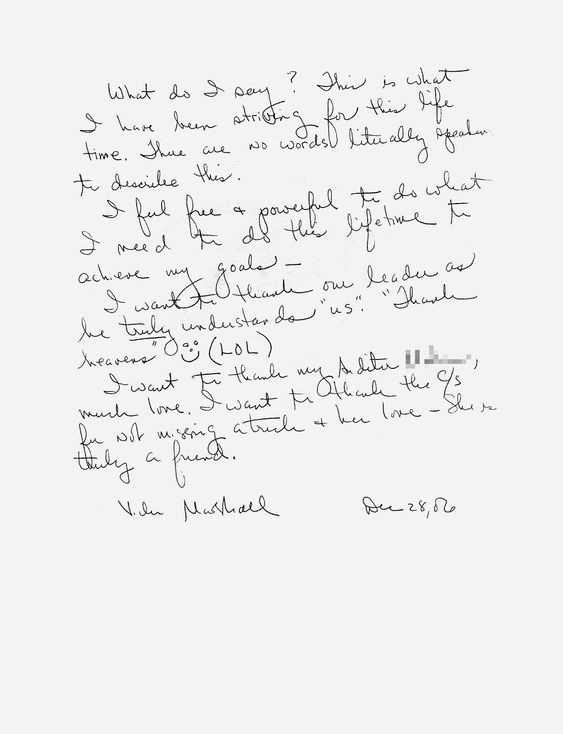 What do I say? This is what
I have been striving for this life
time. There are no words literally speaken
to describe this.
I feel free & powerful to do what
I need to do this lifetime to
achieve my goals —
I want to thank our leader as
he truly understands "us". "Thank
heavens" (LOL)
I want to thank my Auditor
much love. I want to thank the C/S
for not missing a trick & her love — She is
truly a friend.
Marshall Dec 28, 06